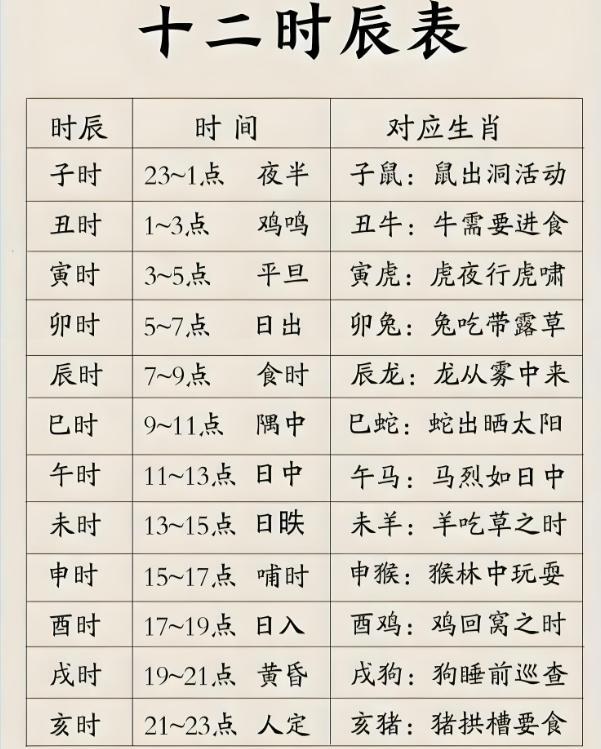 十二时辰表
时辰 时间 对应生肖
子时 23~1点 夜半 子鼠：鼠出洞活动
丑时 1~3点 鸡鸣 丑牛：牛需要进食
寅时 3~5点 平旦 寅虎：虎夜行虎啸
卯时 5~7点 日出 卯兔：兔吃带露草
辰时 7~9点 食时 辰龙：龙从雾中来
巳时 9~11点 隅中 巳蛇：蛇出晒太阳
午时 11~13点 日中 午马：马烈如日中
未时 13~15点 日昳 未羊：羊吃草之时
申时 15~17点 哺时 申猴：猴林中玩耍
酉时 17~19点 日入 酉鸡：鸡回窝之时
戌时 19~21点 黄昏 戌狗：狗睡前巡查
亥时 21~23点 人定 亥猪：猪拱槽要食